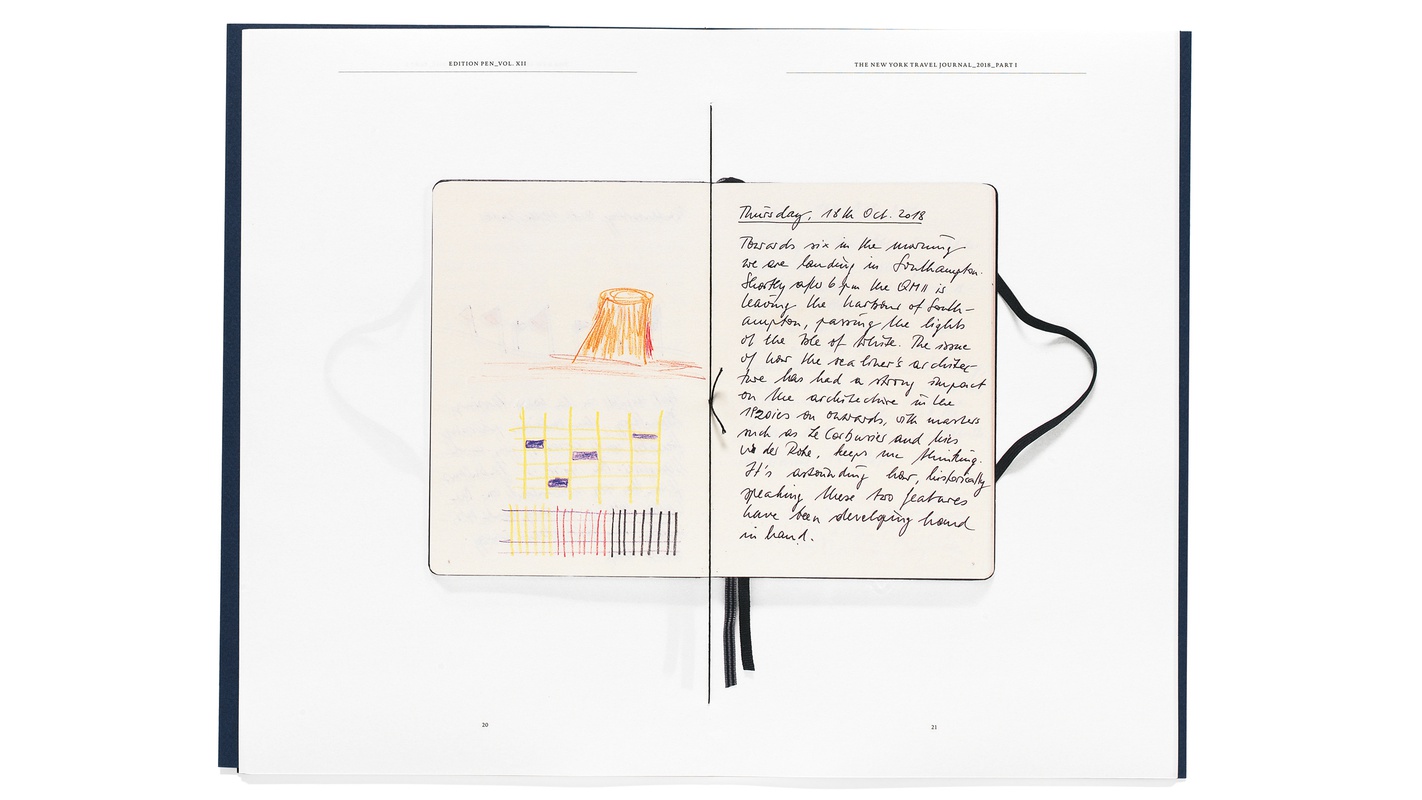 EDITION PEN_VOL. XII
THE NEW YORK TRAVEL JOURNAL_2018_PART I
Thursday, 18th Oct. 2018
Towards six in the morning
we are landing in Southampton.
Shortly after 6 pm the QM II is
leaving the harbour of South-
ampton, passing the lights
of the Isle of White. The issue
of how the sea liner's architec-
ture has had a strong impact
on the architecture in the
1920ies on onwards, with masters
such as Le Corbusier and Mies
van der Rohe, keeps me thinking.
It's astounding how, historically
speaking these two features
have been developing hand
in hand.
20
21